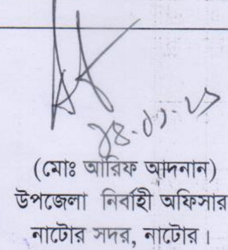 (মোঃ আরিফ আদনান)
উপজেলা নির্বাহী অফিসার
নাটোর সদর, নাটোর।